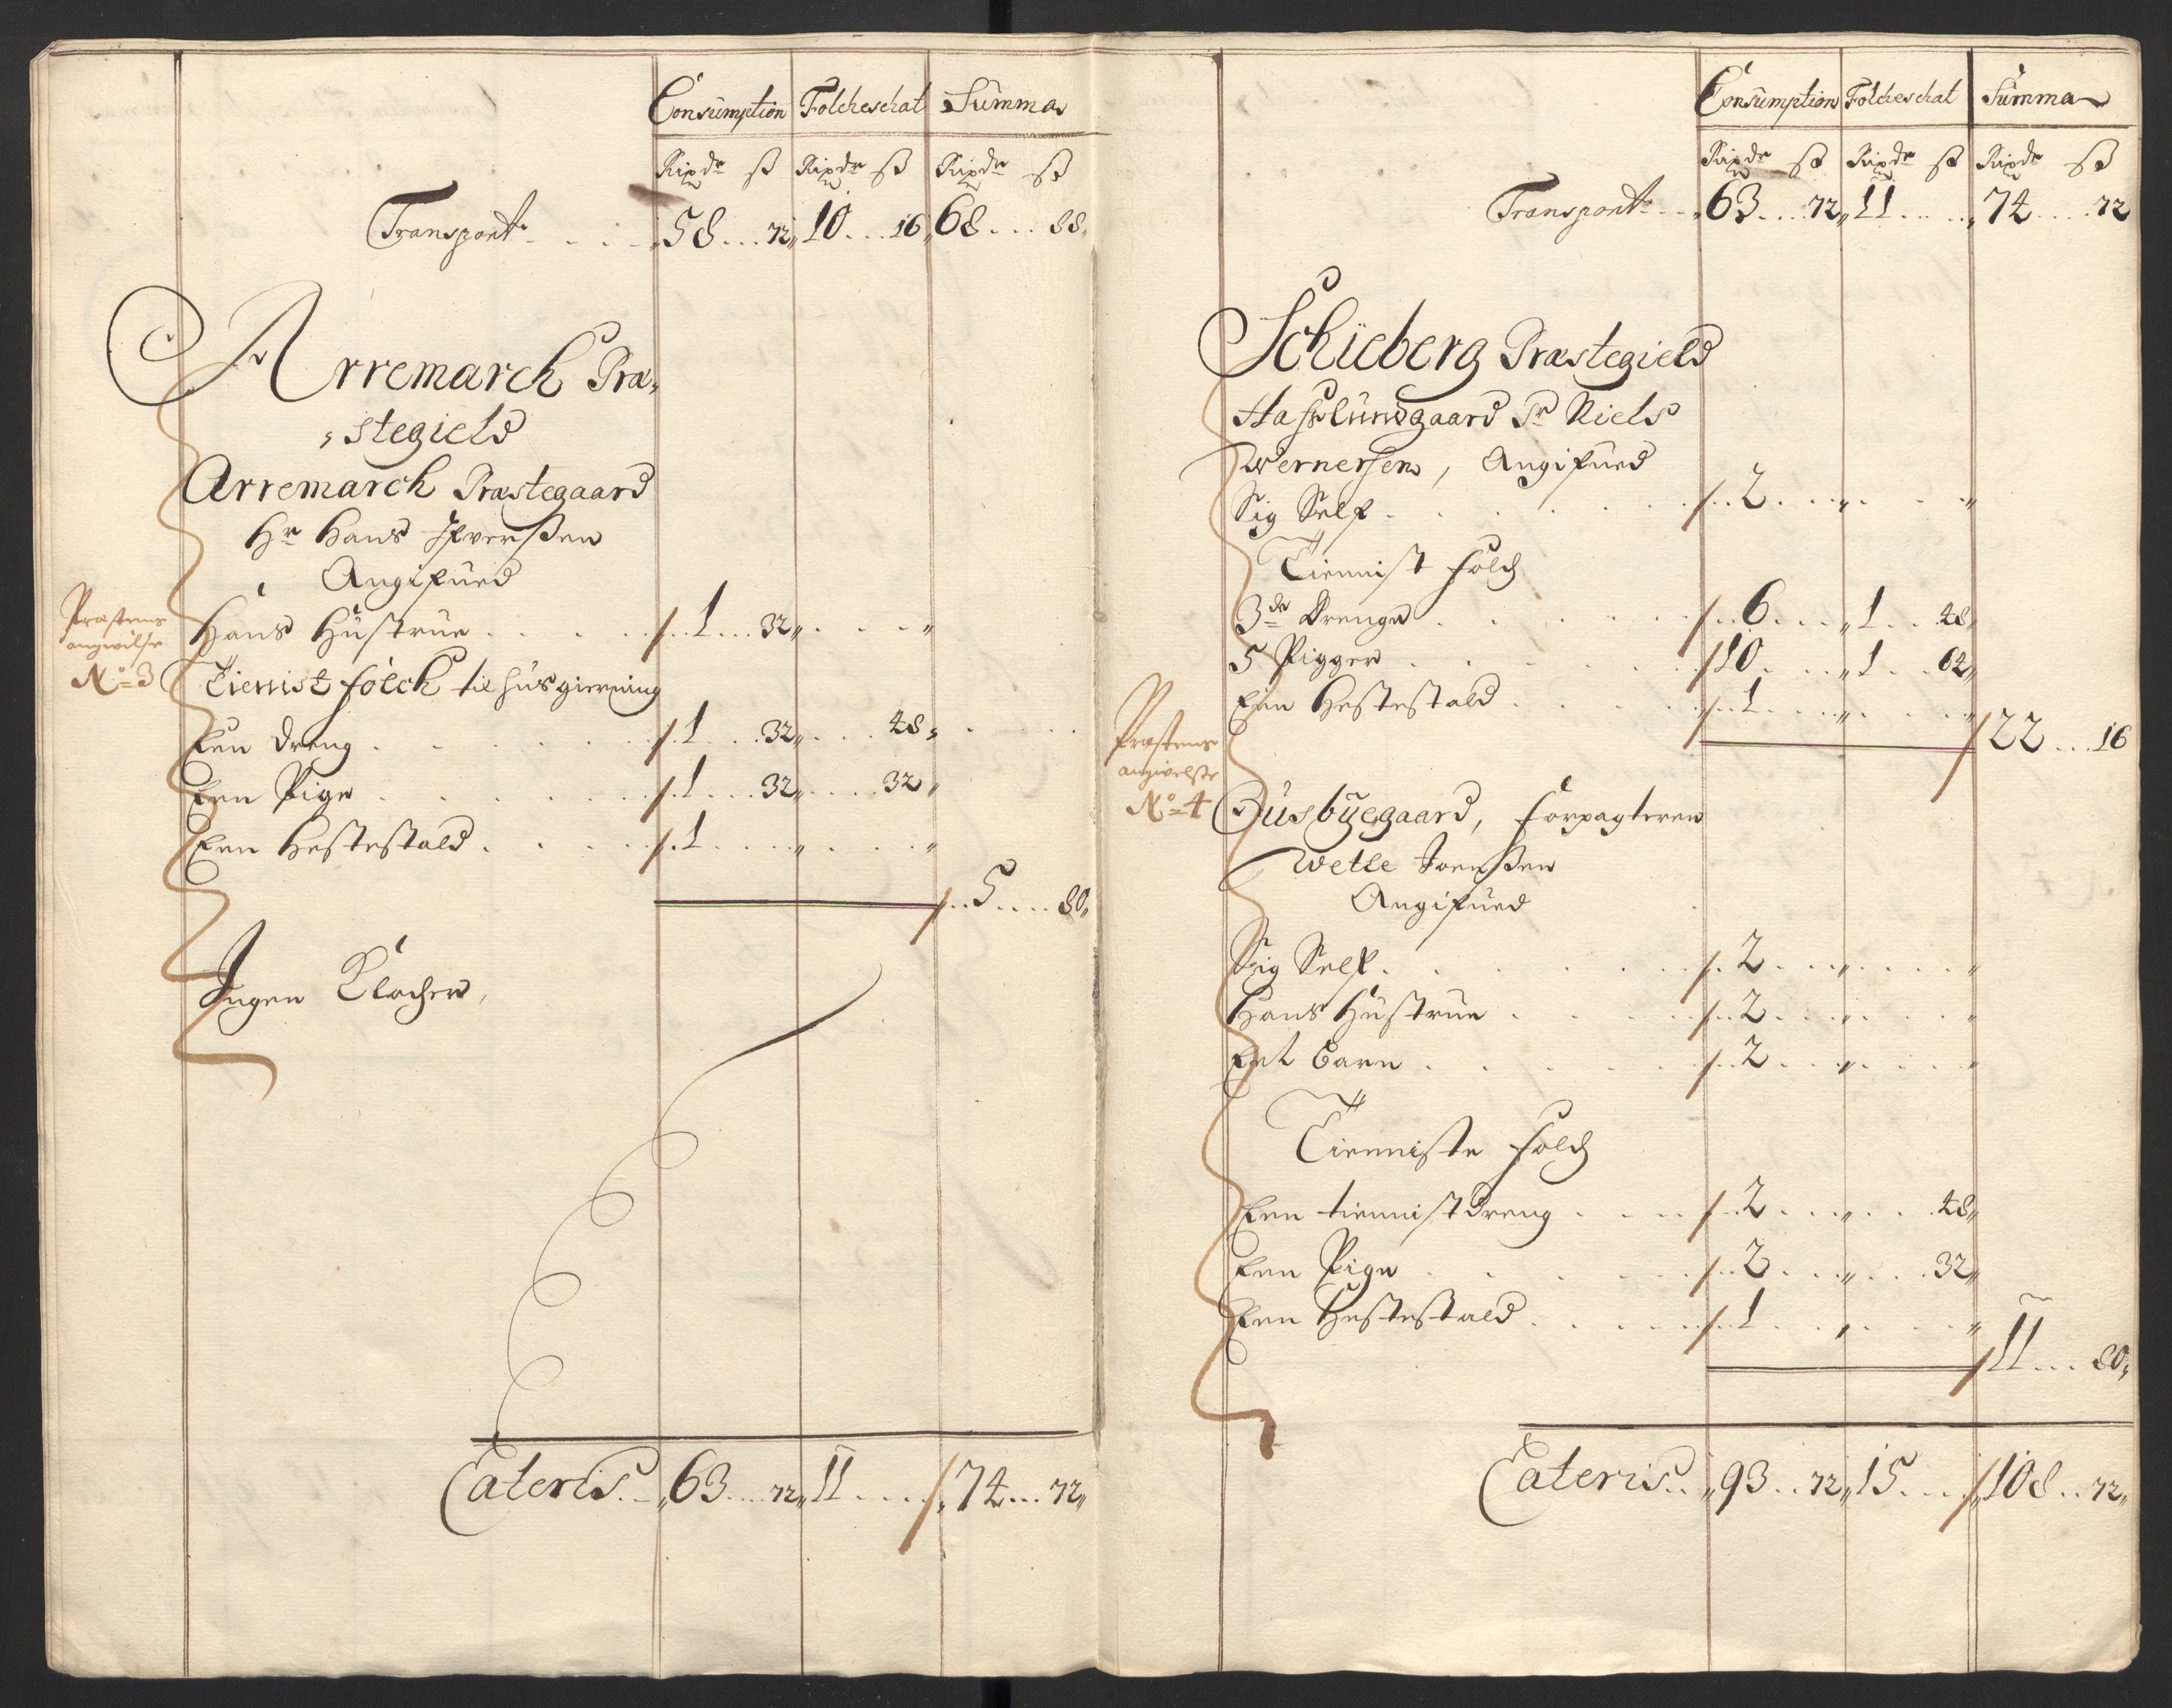 Consumption Folcheschat Summa
Rixdr ß Rixdr ß Rixdr ß
Transport 58 72 10 16 68 88
Arremarch Præ-
stegield
Arremarch Præstegaard
Hr Hans Ifverßen
Angifued
Præstens
angivelse
No 3
Hans Hustrue 1 32
Tienist folck til huusgierning
Een dreng 1 32 48
Een Pige 1 32 32
Een Hestestald 1
5 80
Ingen Klocher
Lateris 63 72 11 74 72
Consumption Folcheschat Summa
Rixdr ß Rixdr ß Rixdr ß
Transport 63 72 11 74 72
Schieberg Præstegield
Haßlundgaard Sr Niels
Wernersen, Angifued
Sig Self 2
Tiennist folch
3de Drenge 6 1 48
5 Pigger 10 1 64
Een Hestestald 1
22 16
Præstens
angivelße
No 4
Busbyegaard, forpagteren
Wetle Joenßen
Angifued
Sig Self 2
Hans Hustrue 2
Eet barn 2
Tienniste folch
Een tiennist dreng 2 48
Een Pige 2 32
Een Hestestald 1
11 80
Lateris 93 72 15 108 72